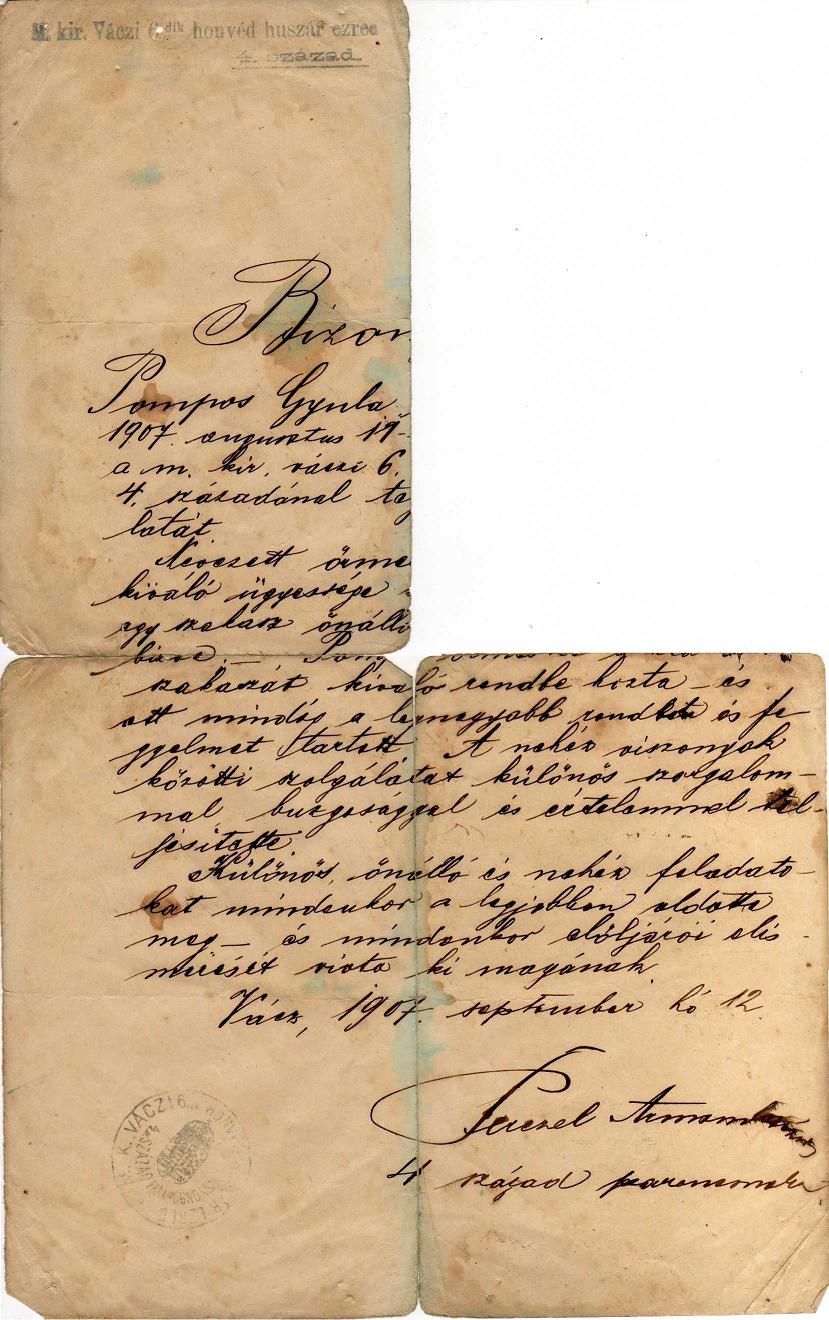 M. kir. Váczi 6 dik honvéd huszár ezred
4. század.
Bizon
Pompos Gyula
1907. augusztus 19-
a m. kir. váczi 6.
4. századánál te
latát
Nevezett őrme
kiváló ügyessége
egy szakasz önálli
bizva. — Pom
szakaszát kiváló rendbe hozta — és
ott mindég a legnagyobb rendet és fe
gyelmet tartott A nehéz viszonyok
közötti szolgálatat különös szorgalom-
mal buzgosággal és értelemmel tel-
jesitette.
Különös, önálló és nehéz feladato-
kat mindenkor a legjobban oldotta
meg — és mindenkor elöljárói elis-
merését vivta ki magának
Vácz, 1907. september hó 12
Perczel Armand
4 század parancsnok